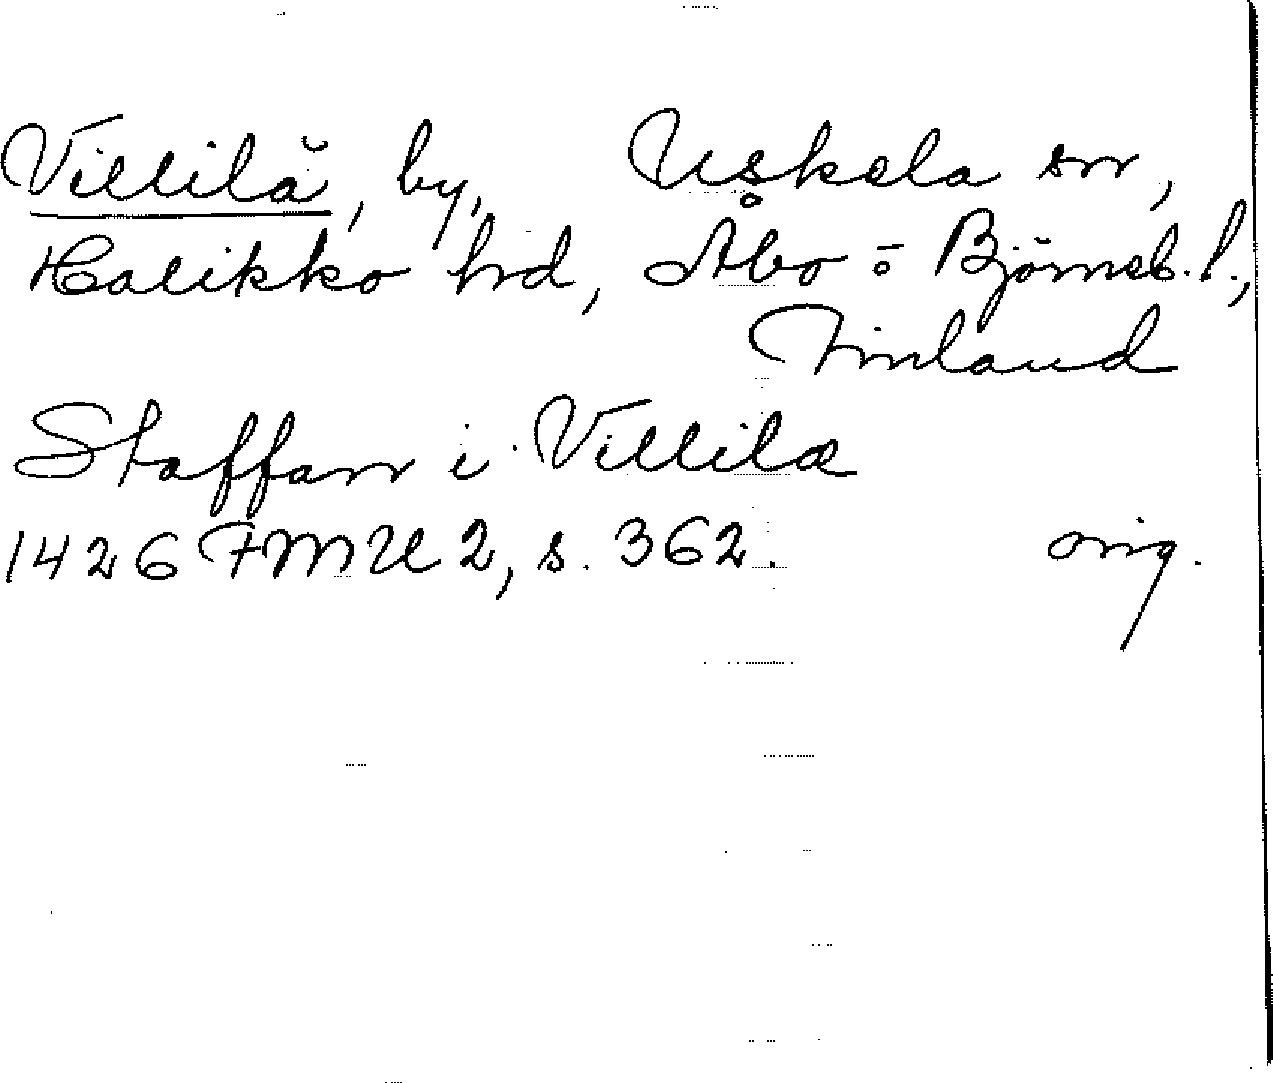 Villilä, by, Uskela sn,
Halikko hrd, Åbo o Björneb. l.,
Finland
Staffan i Villilæ
1426 FMU 2, s. 362. orig.